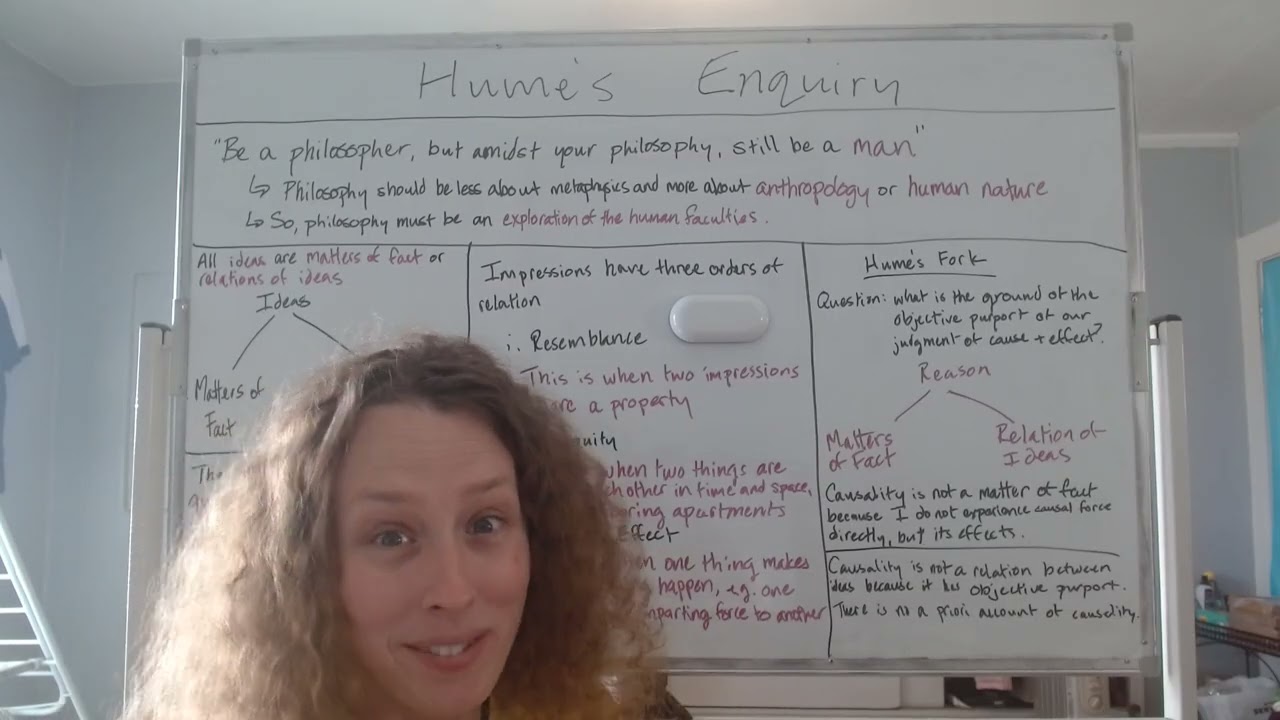 Hume's Enquiry
"Be a philosopher, but amidst your philosophy, still be a man"
↳ Philosophy should be less about metaphysics and more about anthropology or human nature
↳ So, philosophy must be an exploration of the human faculties.
All ideas are matters of fact or
relations of ideas
Ideas
Matters of
Fact
Impressions have three orders of
relation
i. Resemblance
This is when two impressions
a property
when two things are
other in time and space,
apartments
Effect
one thing makes
happen, e.g. one
imparting force to another
Hume's Fork
Question: what is the ground of the
objective purport of our
judgment of cause + effect?
Reason
Matters
of Fact
Relation of
Ideas
Causality is not a matter of fact
because I do not experience causal force
directly, but its effects.
Causality is not a relation between
ideas because it has objective purport.
There is no a priori account of causality.